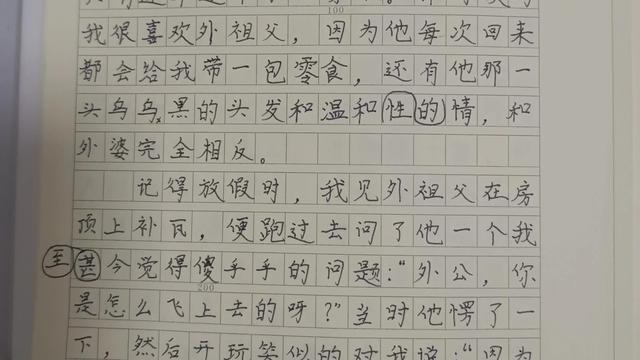 100
我很喜欢外祖父，因为他每次回来
都会给我带一包零食，还有他那一
头乌乌黑的头发和温和性的情，和
外婆完全相反。
记得放假时，我见外祖父在房
顶上补瓦，便跑过去问了他一个我
至甚今觉得傻乎乎的问题：“外公，你
200
是怎么飞上去的呀？”当时他愣了一
下，然后开玩笑似的对我说：“因为